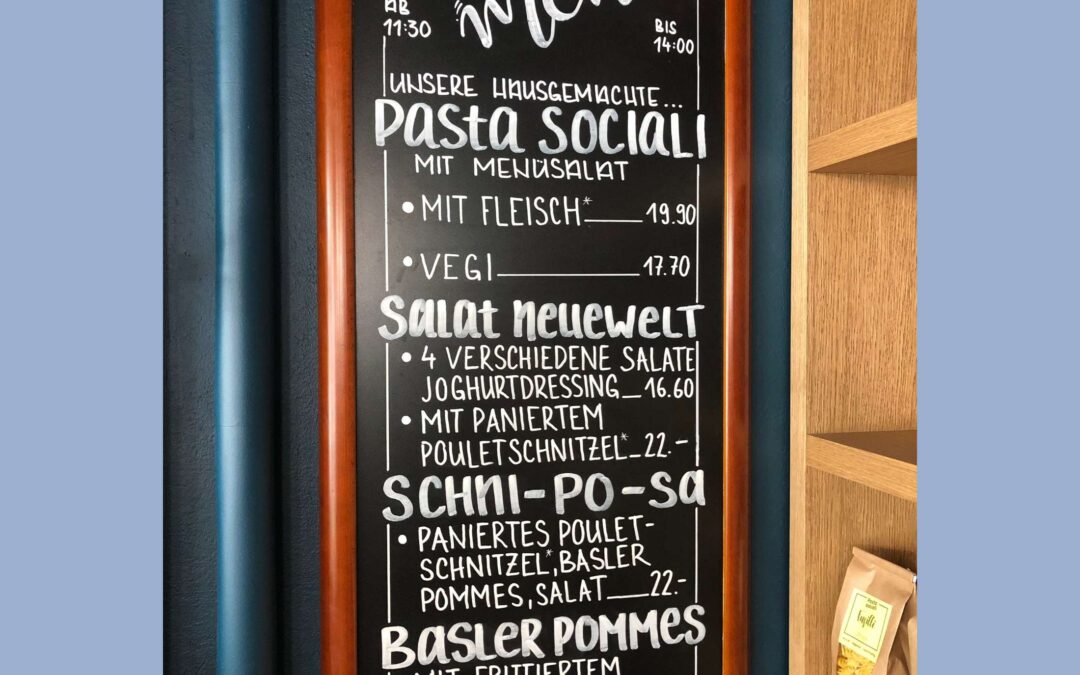 AB
11:30
BIS
14:00
UNSERE HAUSGEMACHTE...
Pasta Sociali
MIT MENÜSALAT
• MIT FLEISCH* 19.90
• VEGI 17.70
Salat neuewelt
• 4 VERSCHIEDENE SALATE
JOGHURTDRESSING 16.60
• MIT PANIERTEM
POULETSCHNITZEL* 22.-
SCHNI-PO-SA
• PANIERTES POULET-
SCHNITZEL*, BASLER
POMMES, SALAT 22.-
BASLER POMMES
MIT FRITTIERTEM